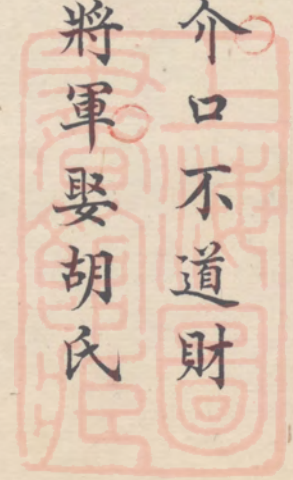 介口不道財
將軍娶胡氏